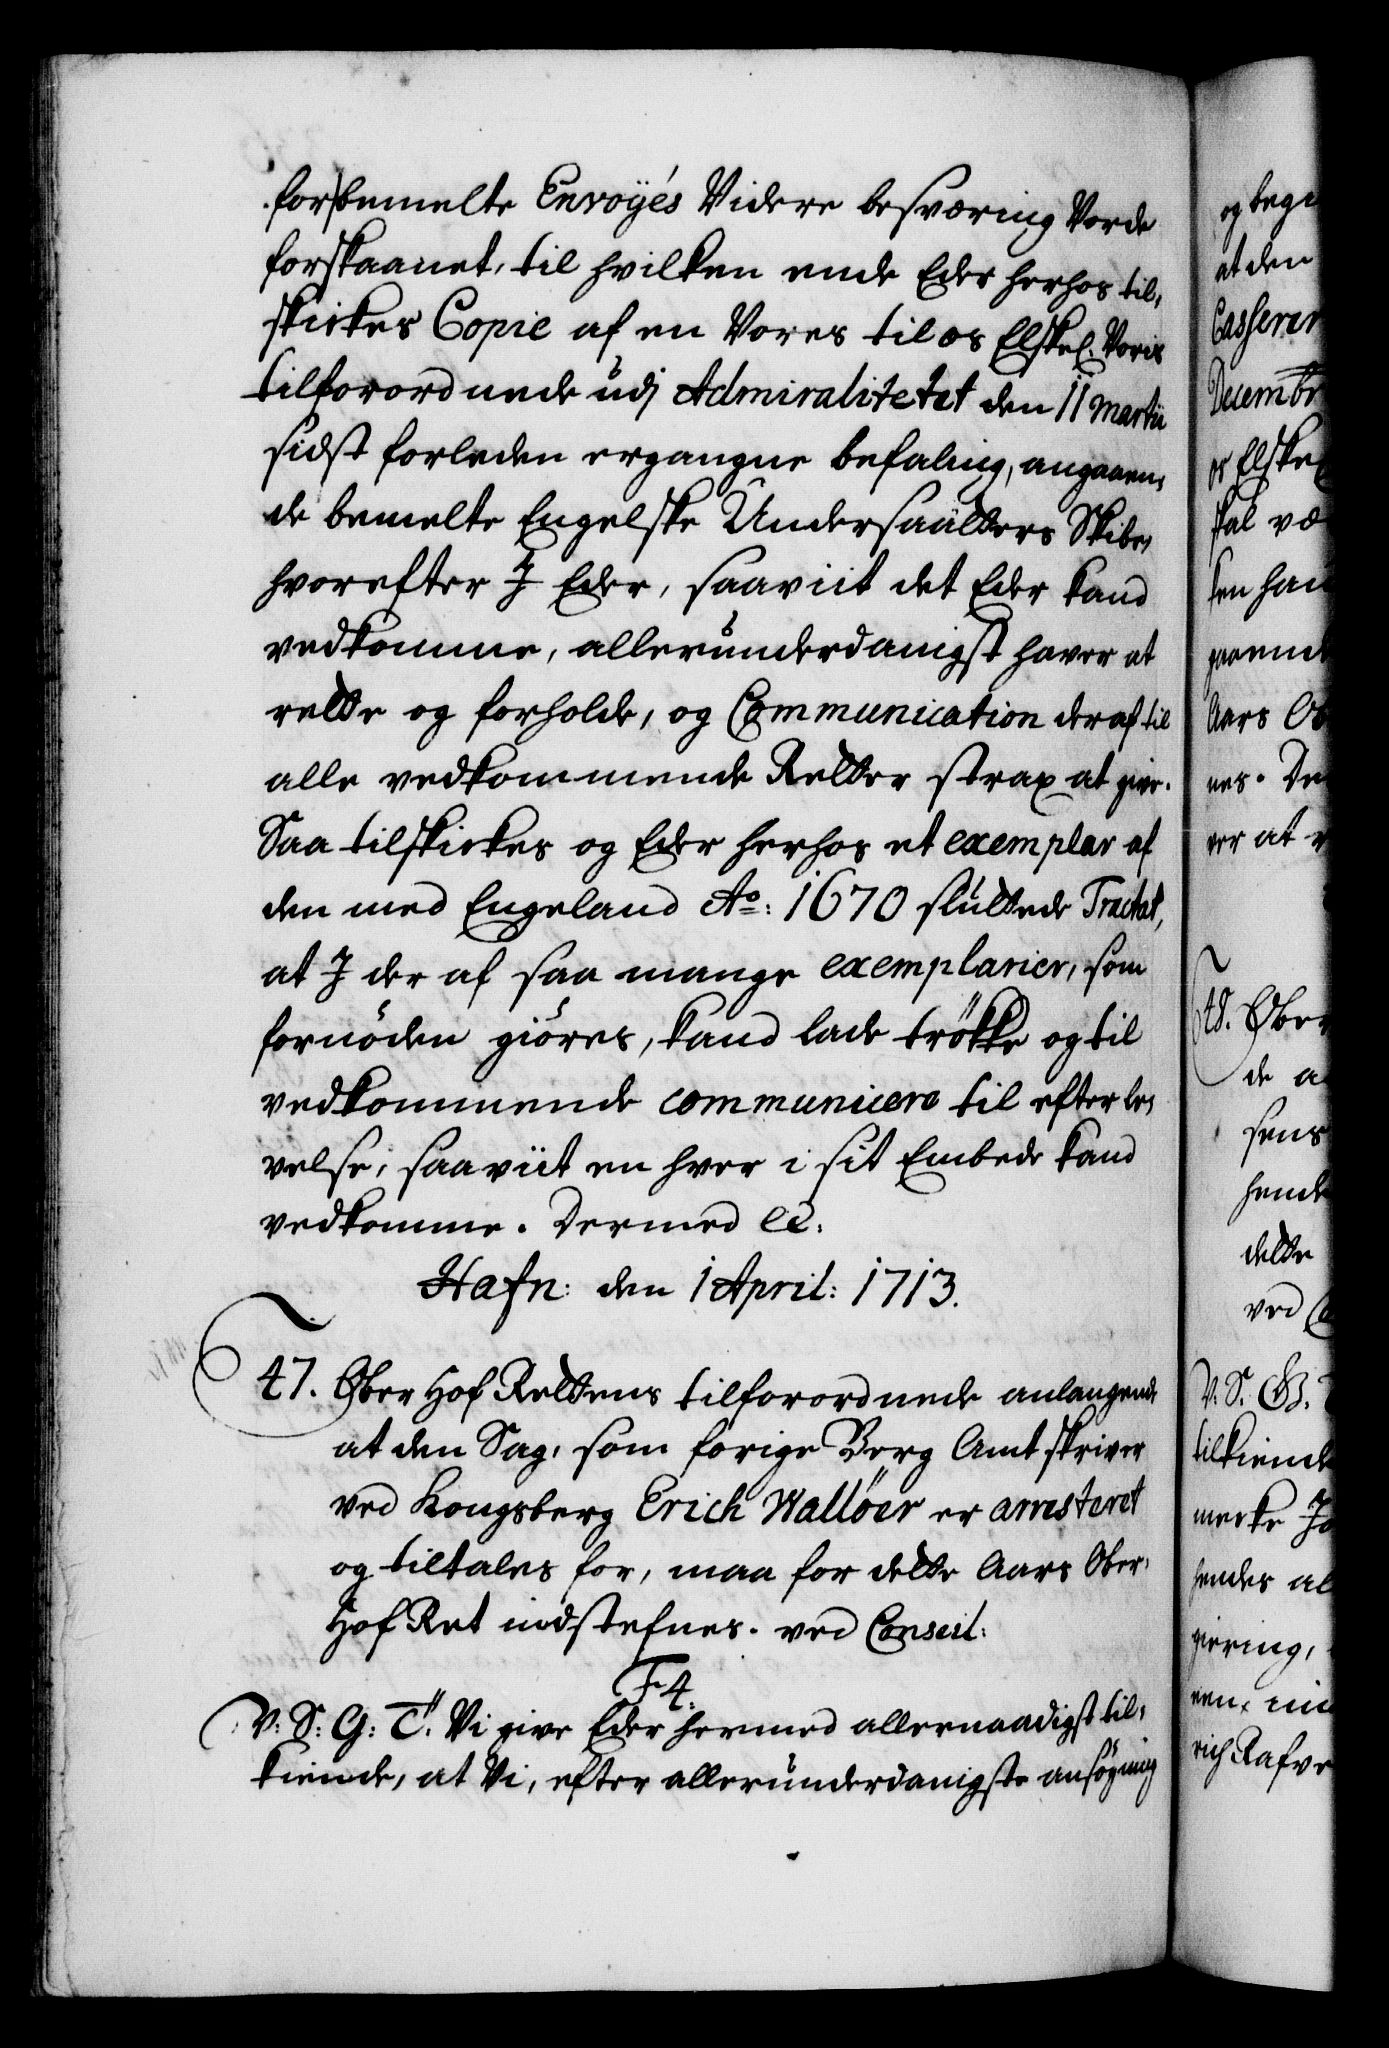 forbemelte Envoyés Videre besværing Vorde
forskaanet, til hvilken ende Eder herhos til,
skickes Copie af en Vores til os Elskel. Voris
tilforordnede udj Admiralitetet den 11 Martii
sidst forleden ergangne befaling, angaaen,
de bemelte Engelske Undersaatters Skibe,
hvorefter J Eder, saaviit det Eder kand
vedkomme, allerunderdanigst haver at
rette og forholde, og Communication deraf til
alle vedkommende Retter strax at give.
Saa tilskickes og Eder herhos et exemplar af
den med Engeland Ao: 1670 sluttede Tractat,
at J der af saa mange exemplarier, som
fornöden giöres, kand lade trökke og til
vedkommende communicere til efterle,
velse, saaviit en hver i sit Embede kand
vedkomme. Dermed etc:
Hafn: den 1 April: 1713.
47. Ober Hof Rettens tilforordnede anlangende
at den Sag, som forige Berg Amtskriver
ved Kongsberg Erich Wallöer er arresteret
og tiltales for, maa for dette Aars Ober,
Hof Ret indstefnes. ved Conseil:
F 4.
V: S: G: T. Vi give Eder hermed allernaadigst til,
kiende, at Vi, efter allerunderdanigste ansögning
og begi
at den
Casserer
Decembr
os Elskel
skal væ
ken han
gaaende
Aars Ob
nes. De
ver at
48. Ober
de a
sens
hende
dette
ved C
V: S: G. T
tilkiende
merke Jo
hendes al
giering,
rich Rafve